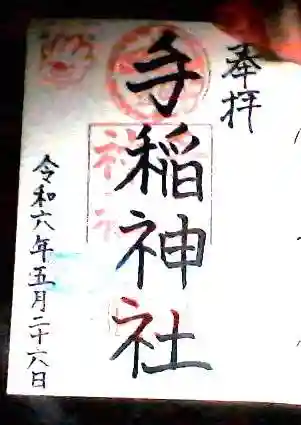 奉拝
手稲神社
令和六年五月二十六日